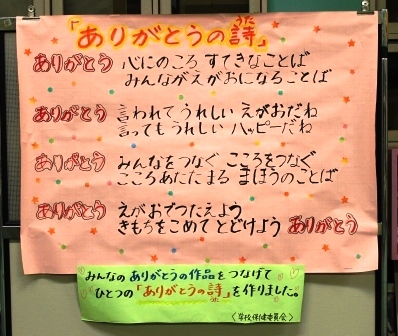 「ありがとうの詩」
うた
ありがとう 心にのこる すてきなことば
みんながえがおになることば
ありがとう 言われてうれしい えがおだね
言ってもうれしい ハッピーだね
ありがとう みんなをつなぐ こころをつなぐ
こころあたたまる まほうのことば
ありがとう えがおでつたえよう
きもちをこめて とどけよう ありがとう
みんなのありがとうの作品をつなげて
ひとつの「ありがとうの詩」を作りました。
うた
〈学校保健委員会〉